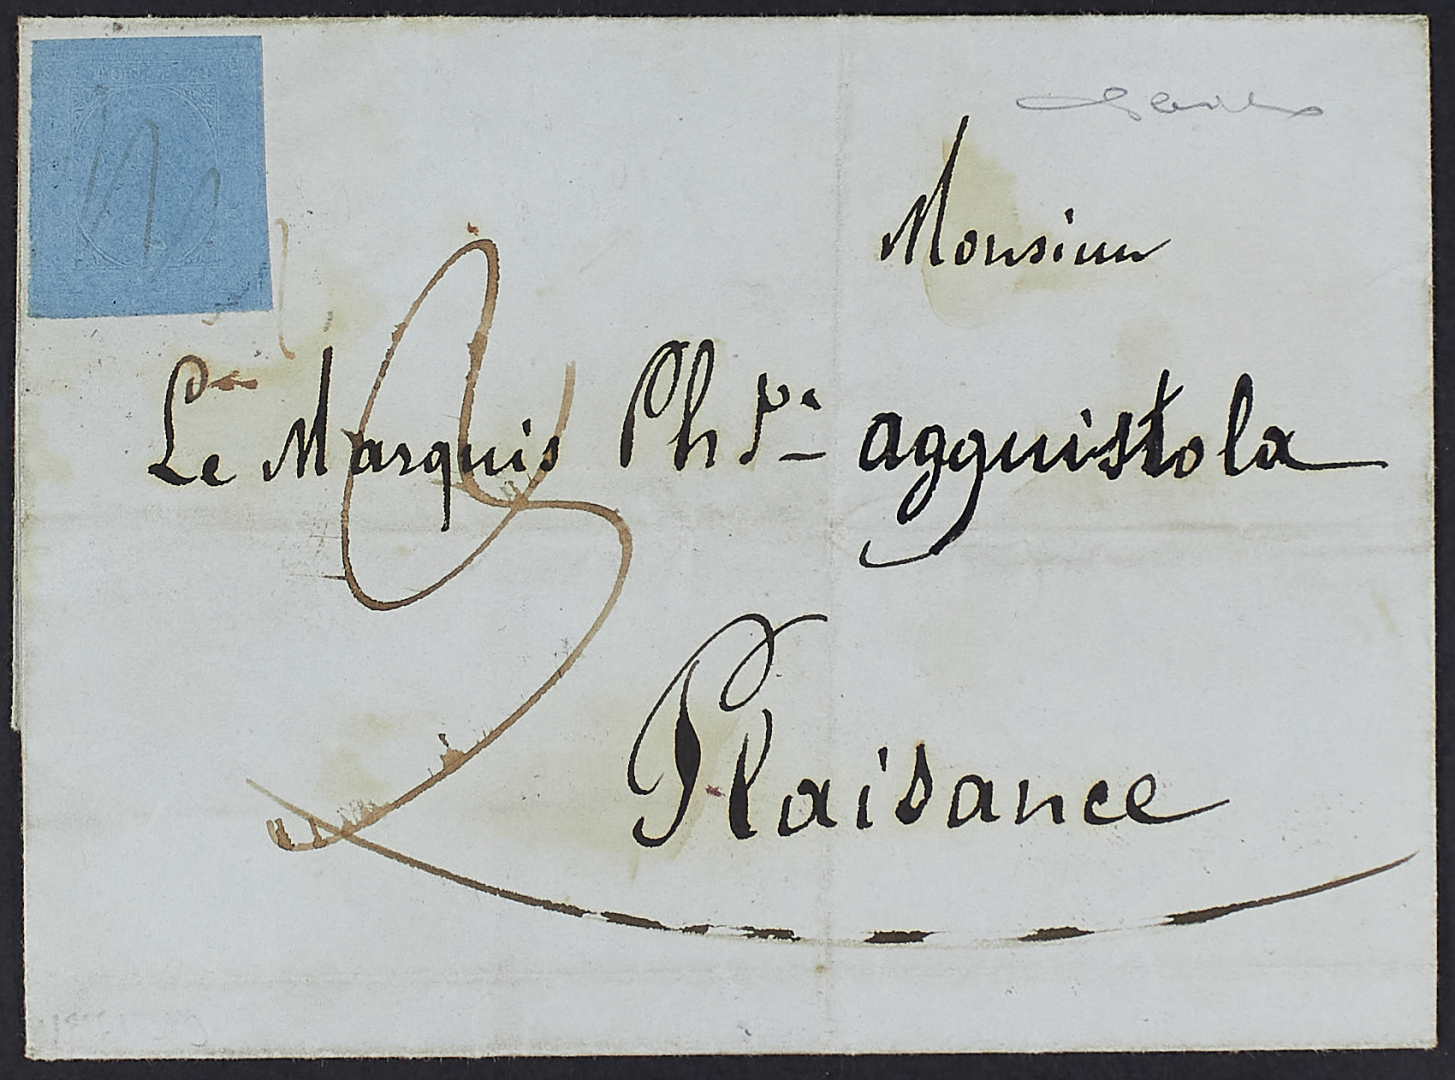 Monsieur
Le Marquis Ph agguistola
Plaisance
3